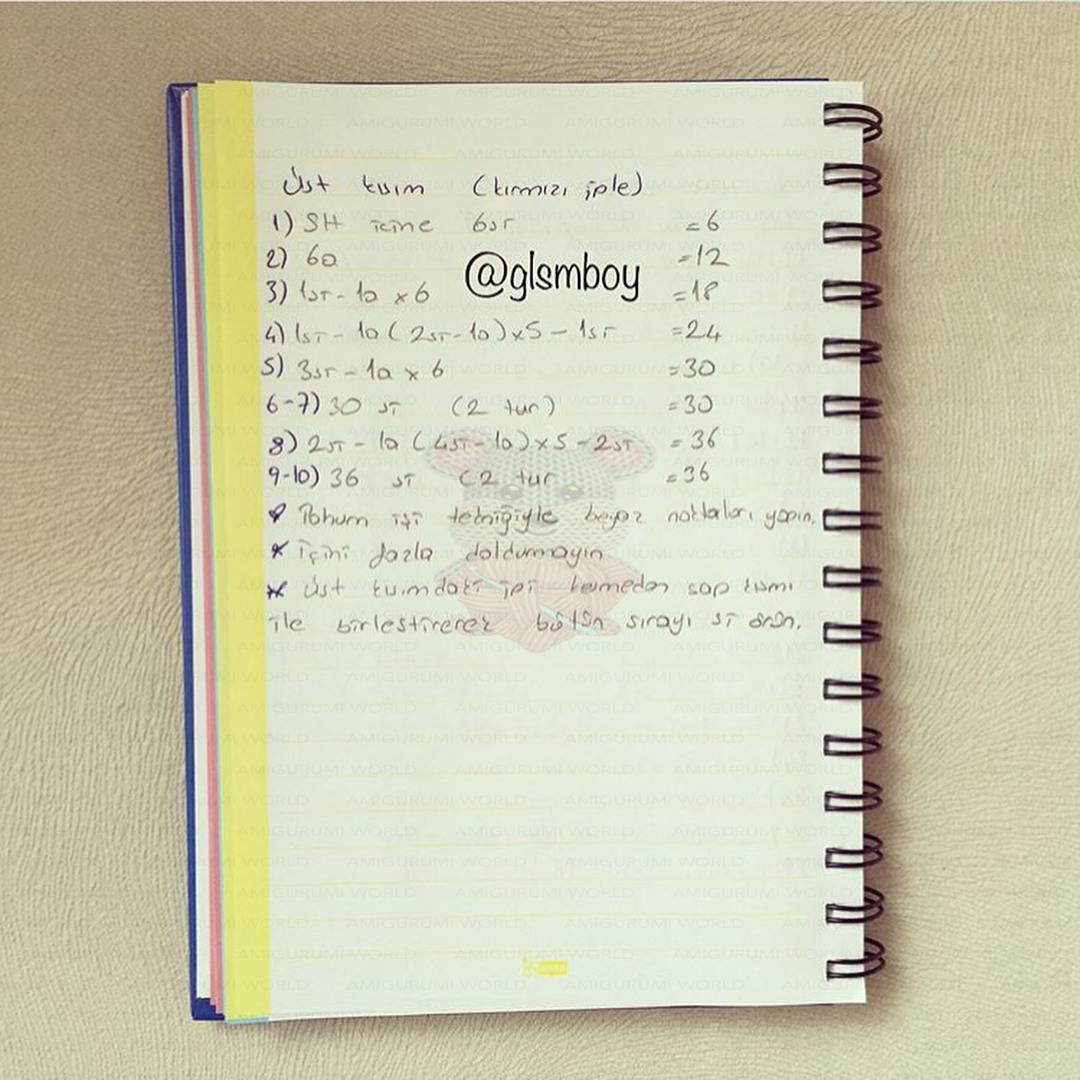 Üst kısım (kırmızı iple)
1) SH içine 6sı = 6
2) 6a = 12
@glsmboy
3) 1sı - 1a x 6 = 18
4) 1sı - 1a ( 2sı - 1a ) x 5 - 1sı = 24
5) 3sı - 1a x 6 = 30
6-7) 30 sı (2 tur) = 30
8) 2sı - 1a (4sı - 1a) x 5 - 2sı = 36
9-10) 36 sı (2 tur = 36
* Tohum işi tekniğiyle beyaz noktaları yapın.
* İçini fazla doldurmayın
* Üst kısımdaki ipi kesmeden sap kısmı
ile birleştirerek bütün sırayı sı örün.
AMIGURUMI WORLD